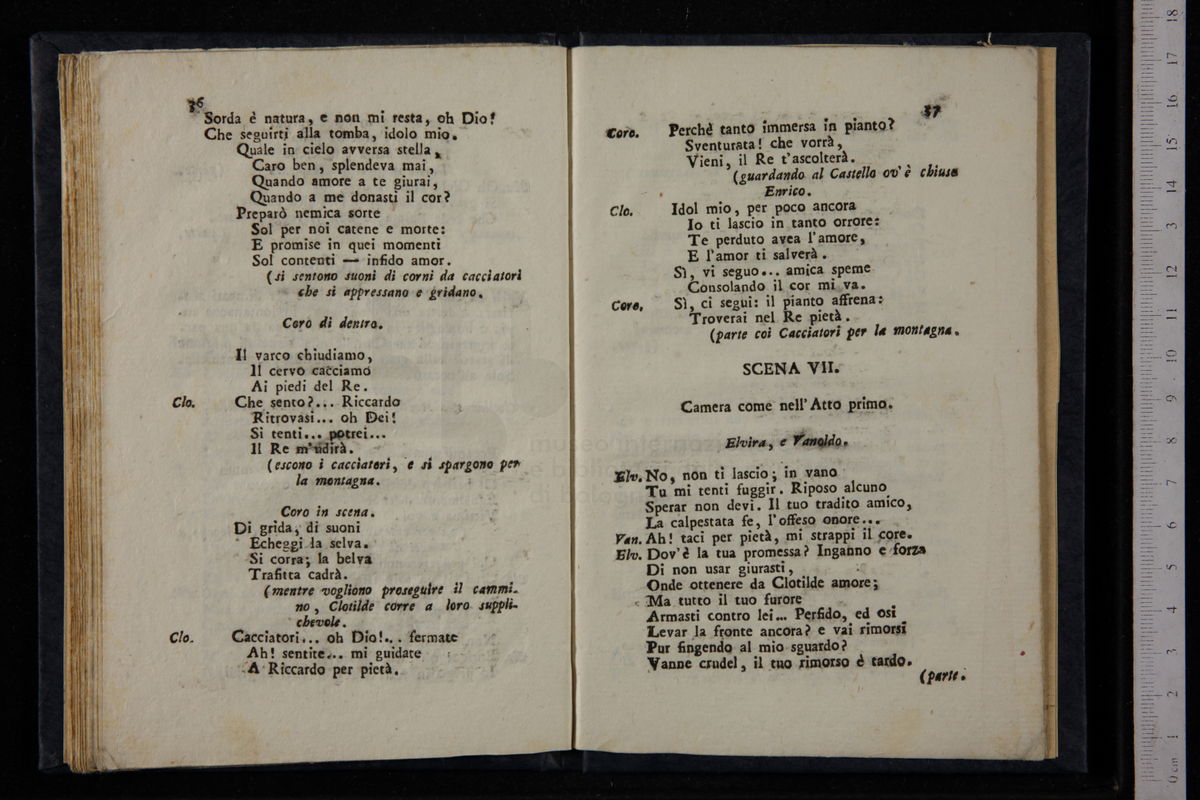 36
Sorda è natura, e non mi resta, oh Dio!
Che seguirti alla tomba, idolo mio.
Quale in cielo avversa stella,
Caro ben, splendeva mai,
Quando amore a te giurai,
Quando a me donasti il cor?
Preparò nemica sorte
Sol per noi catene e morte:
E promise in quei momenti
Sol contenti — infido amor.
(si sentono suoni di corni da cacciatori
che si appressano e gridano.
Coro di dentro.
Il varco chiudiamo,
Il cervo cacciamo
Ai piedi del Re.
Clo. Che sento?... Riccardo
Ritrovasi... oh Dei!
Si tenti... potrei...
Il Re m'udirà.
(escono i cacciatori, e si spargono per
la montagna.
Coro in scena.
Di grida, di suoni
Echeggi la selva.
Si corra; la belva
Trafitta cadrà.
(mentre vogliono proseguire il cammi-
no, Clotilde corre a loro suppli-
chevole.
Clo. Cacciatori... oh Dio!... fermate
Ah! sentite... mi guidate
A Riccardo per pietà.
37
Coro. Perchè tanto immersa in pianto?
Sventurata! che vorrà,
Vieni, il Re t'ascolterà.
(guardando al Castello ov'è chiuso
Enrico.
Clo. Idol mio, per poco ancora
Io ti lascio in tanto orrore:
Te perduto avea l'amore,
E l'amor ti salverà.
Sì, vi seguo... amica speme
Consolando il cor mi va.
Coro. Sì, ci segui: il pianto affrena:
Troverai nel Re pietà.
(parte coi Cacciatori per la montagna.
SCENA VII.
Camera come nell'Atto primo.
Elvira, e Vanoldo.
Elv. No, non ti lascio; in vano
Tu mi tenti fuggir. Riposo alcuno
Sperar non devi. Il tuo tradito amico,
La calpestata fe, l'offeso onore...
Van. Ah! taci per pietà, mi strappi il core.
Elv. Dov'è la tua promessa? Inganno e forza
Di non usar giurasti,
Onde ottenere da Clotilde amore;
Ma tutto il tuo furore
Armasti contro lei... Perfido, ed osi
Levar la fronte ancora? e vai rimorsi
Pur fingendo al mio sguardo?
Vanne crudel, il tuo rimorso è tardo.
(parte.